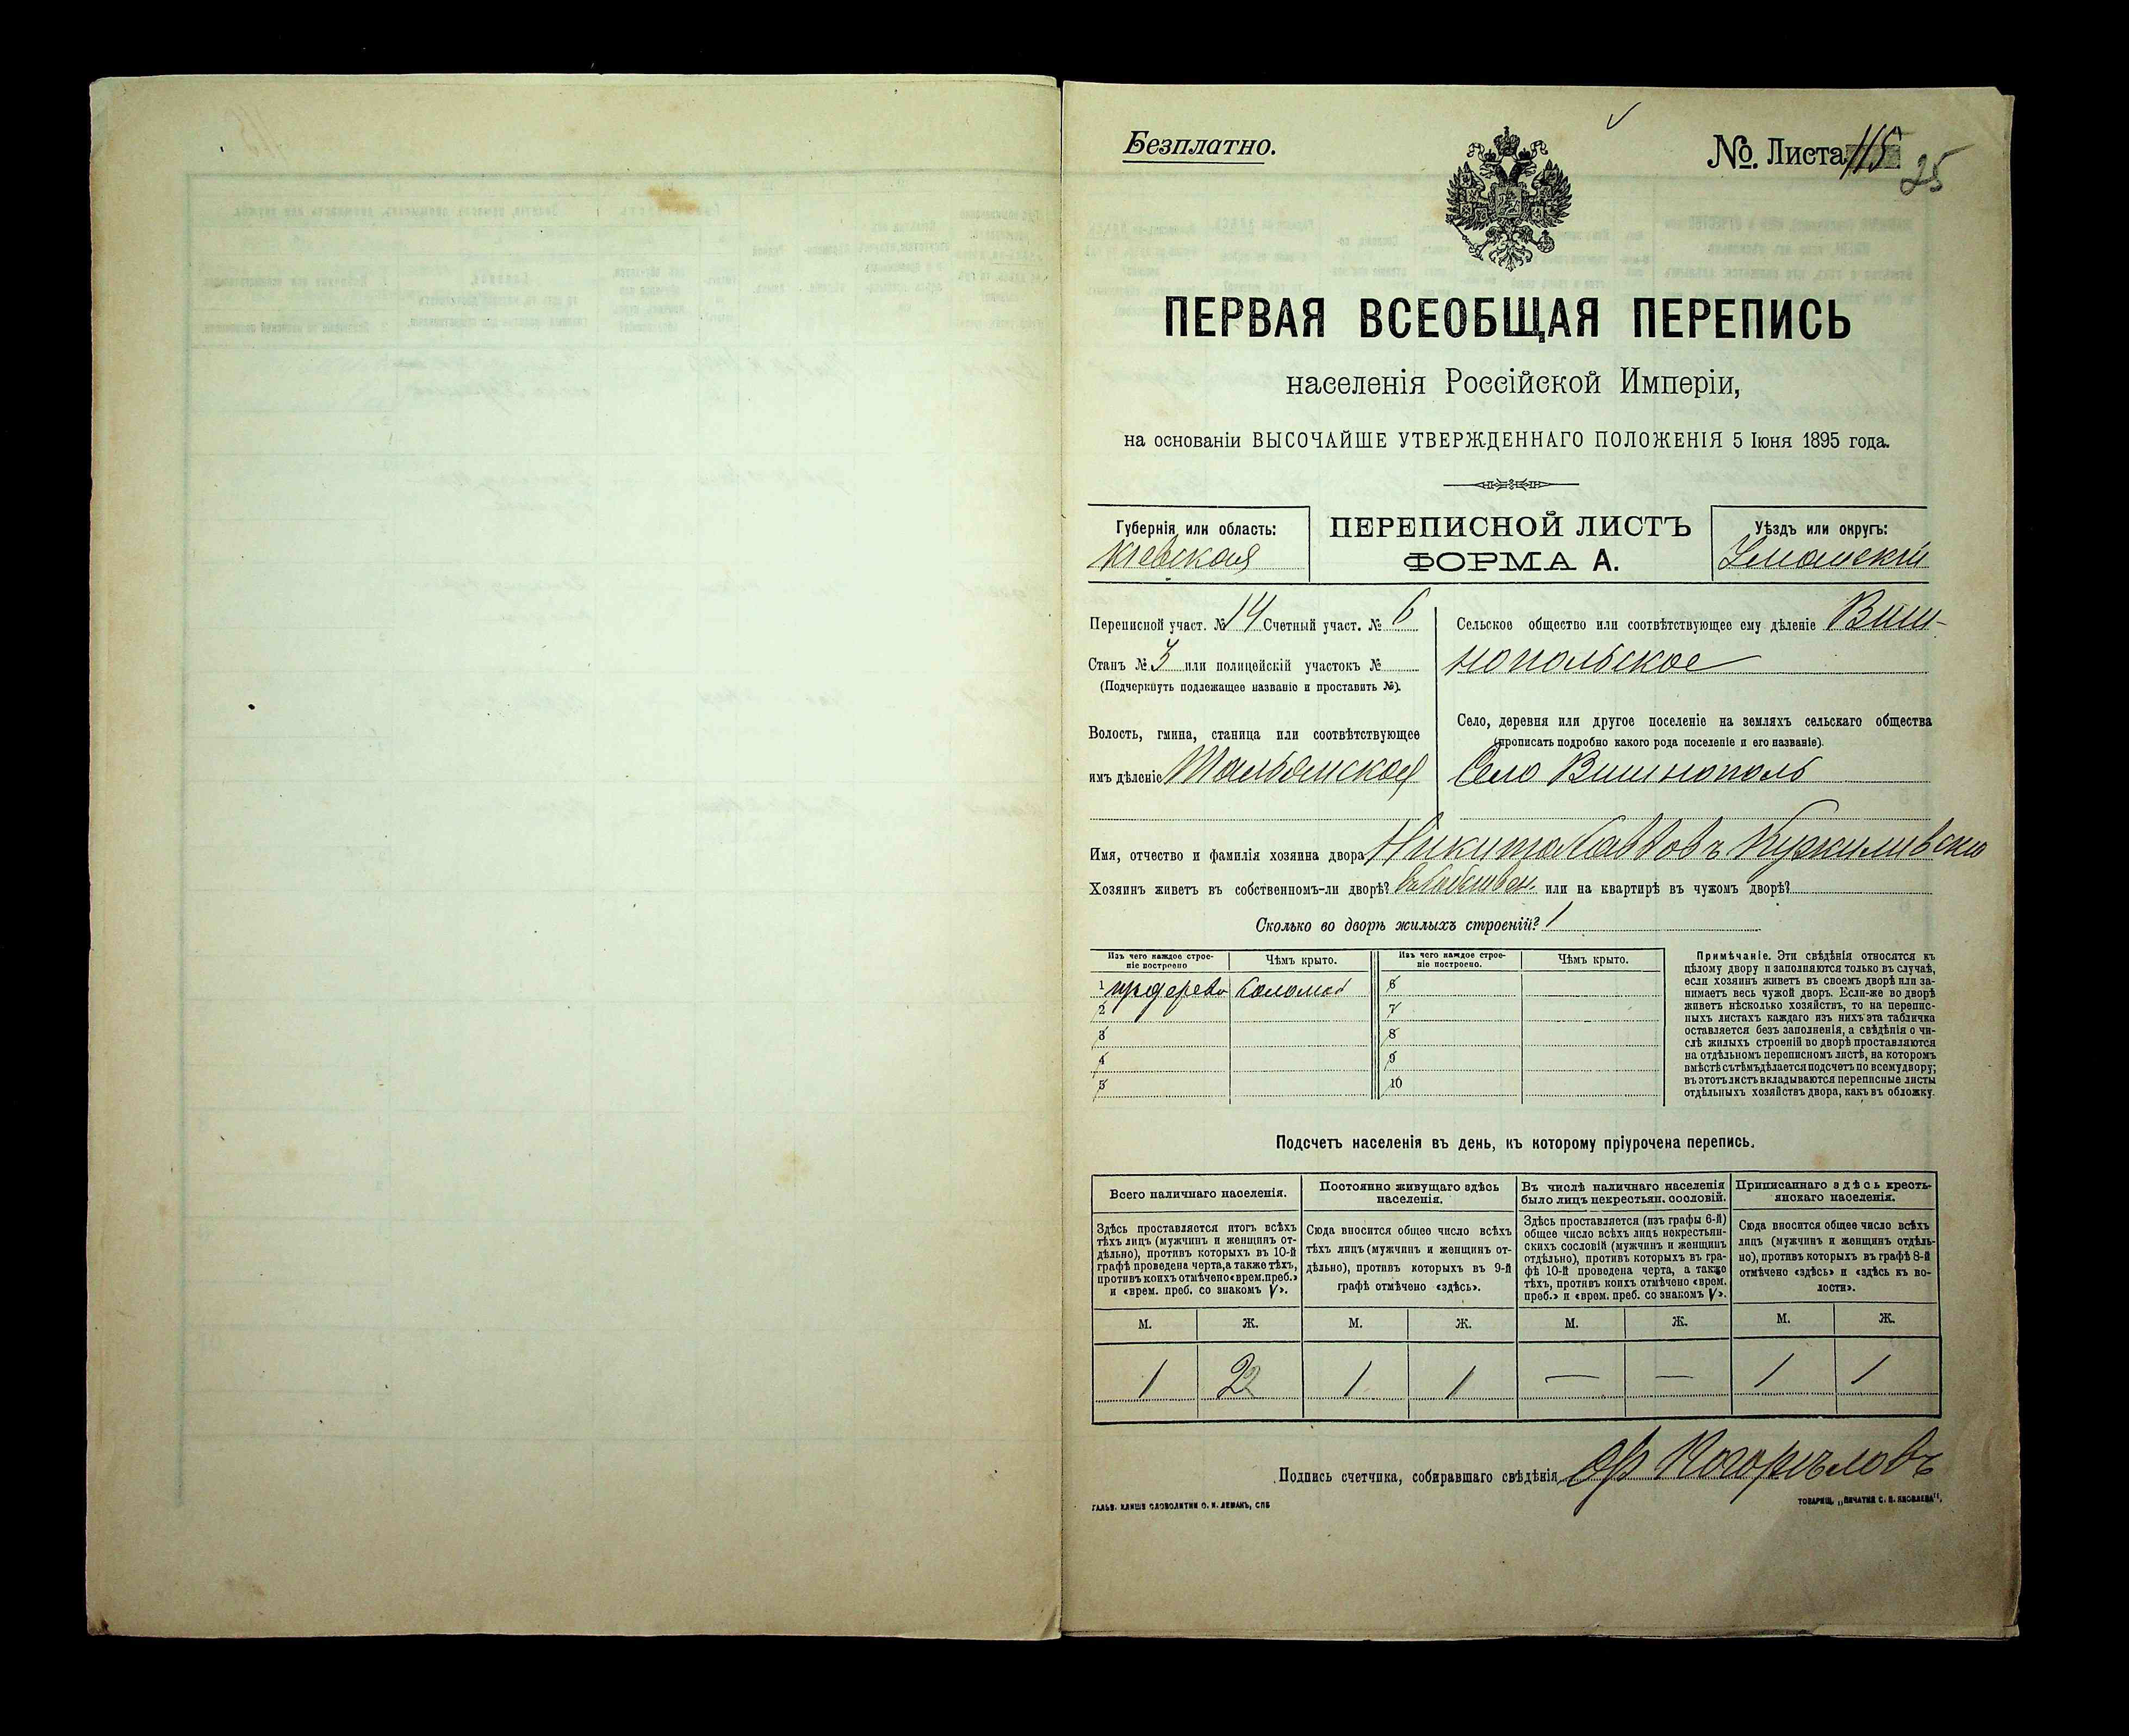 Безплатно.
№ Листа 115
25
ПЕРВАЯ ВСЕОБЩАЯ ПЕРЕПИСЬ
населенія Россійской Имперіи,
на основаніи ВЫСОЧАЙШЕ УТВЕРЖДЕННАГО ПОЛОЖЕНІЯ 5 Іюня 1895 года.
Губернія или область:
Кіевская
ПЕРЕПИСНОЙ ЛИСТЪ
ФОРМА А.
Уѣздъ или округъ:
Уманскій
Переписной участ. № 14 Счетный участ. № 6
Станъ № 3 или полицейскій участокъ №
(Подчеркнуть подлежащее названіе и проставить №).
Волость, гмина, станица или соотвѣтствующее
имъ дѣленіе Тальянская
Сельское общество или соотвѣтствующее ему дѣленіе Виш-
нопольское
Село, деревня или другое поселеніе на земляхъ сельскаго общества
(прописать подробно какого рода поселеніе и его названіе).
Село Вишнополь
Имя, отчество и фамилія хозяина двора Никита Саввовъ
Хозяинъ живетъ въ собственномъ-ли дворѣ? въ собствен. или на квартирѣ въ чужомъ дворѣ?
Сколько во дворѣ жилыхъ строеній? 1
Изъ чего каждое строе-
ніе построено
Чѣмъ крыто.
Изъ чего каждое строе-
ніе построено.
Чѣмъ крыто.
1 дерева соломой
2
3
4
5
6
7
8
9
10
Примѣчаніе. Эти свѣдѣнія относятся къ
цѣлому двору и заполняются только въ случаѣ,
если хозяинъ живетъ въ своемъ дворѣ или за-
нимаетъ весь чужой дворъ. Если-же во дворѣ
живетъ нѣсколько хозяйствъ, то на перепис-
ныхъ листахъ каждаго изъ нихъ эта табличка
оставляется безъ заполненія, а свѣдѣнія о чи-
слѣ жилыхъ строеній во дворѣ проставляются
на отдѣльномъ переписномъ листѣ, на которомъ
вмѣстѣ съ тѣмъ дѣлается подсчетъ по всему двору;
въ этотъ листъ вкладываются переписные листы
отдѣльныхъ хозяйствъ двора, какъ въ обложку.
Подсчетъ населенія въ день, къ которому пріурочена перепись.
Всего наличнаго населенія.
Здѣсь проставляется итогъ всѣхъ
тѣхъ лицъ (мужчинъ и женщинъ от-
дѣльно), противъ которыхъ въ 10-й
графѣ проведена черта, а также тѣхъ,
противъ коихъ отмѣчено «врем. преб.»
и «врем. преб. со знакомъ V».
Постоянно живущаго здѣсь
населенія.
Сюда вносится общее число всѣхъ
тѣхъ лицъ (мужчинъ и женщинъ от-
дѣльно), противъ которыхъ въ 9-й
графѣ отмѣчено «здѣсь».
Въ числѣ наличнаго населенія
было лицъ некрестьян. сословій.
Здѣсь проставляется (изъ графы 6-й)
общее число всѣхъ лицъ некрестьян-
скихъ сословій (мужчинъ и женщинъ
отдѣльно), противъ которыхъ въ гра-
фѣ 10-й проведена черта, а также
тѣхъ, противъ коихъ отмѣчено «врем.
преб.» и «врем. преб. со знакомъ V».
Приписаннаго здѣсь кресть-
янскаго населенія.
Сюда вносится общее число всѣхъ
лицъ (мужчинъ и женщинъ отдѣль-
но), противъ которыхъ въ графѣ 8-й
отмѣчено «здѣсь» и «здѣсь къ во-
лости».
М. Ж. М. Ж. М. Ж. М. Ж.
1 2 1 1 — — 1 1
Подпись счетчика, собиравшаго свѣдѣнія
ГАЛЬВ. КЛИШЕ СЛОВОЛИТНИ О. И. ЛЕМАНЪ, СПБ
ТОВАРИЩ. „ПЕЧАТНЯ С. П. ЯКОВЛЕВА".